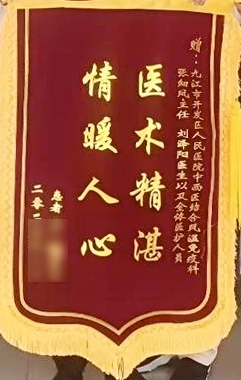 赠：九江市开发区人民医院中西医结合风湿免疫科
张如凤主任 刘泽阳医生以及全体医护人员
医术精湛
情暖人心
患者
二零